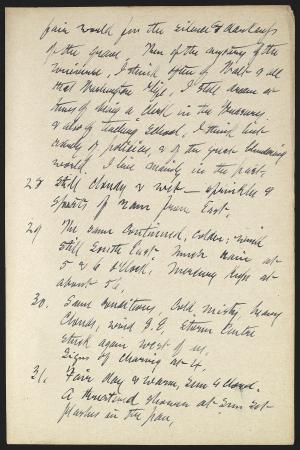 fair world for the silence & darkness
of the grave. Then of the mystery of the
universe, I think often of Walt & all
that Washington life, I still dream at
times of being a clerk in the Treasury
& also of teaching school, I think but
rarely of politics, & of the great blundering
world. I live mainly in the past.
28 Still cloudy & wet — sprinkle &
spurts of rain from East.
29 The same continued, colder; wind
still South East. Much rain at
5 & 6 o'clock. Mercury keeps at
about 56.
30. Same conditions, Cold, misty, heavy
Clouds, wind S.E., Storm Centre
stuck again west of us,
Signs of clearing at 4,
31. Fair day & warm, Sun & cloud.
A threatened shower at Sun set
flashes in the pan,